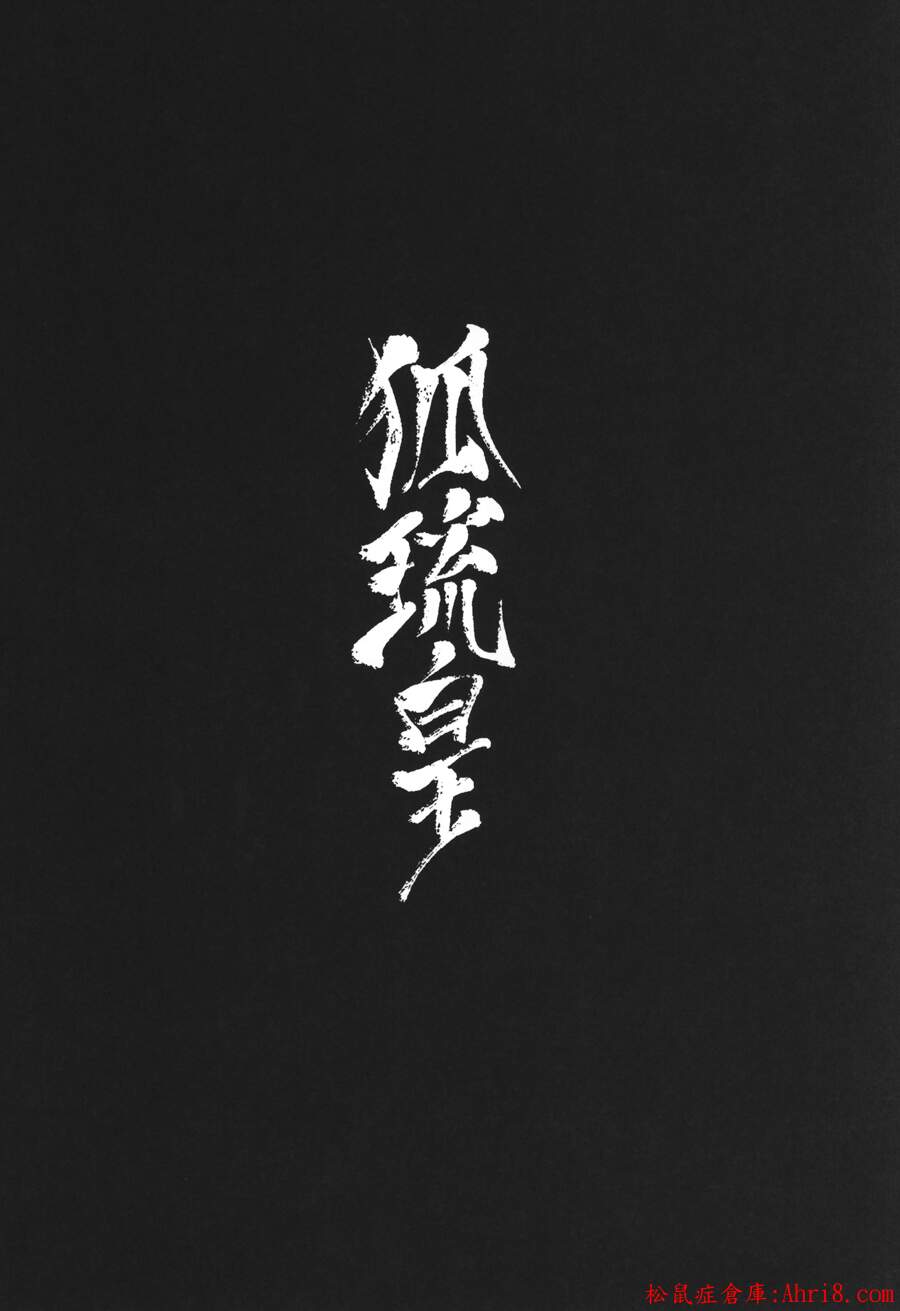 狐琉皇
松鼠症倉庫:Ahri8.com